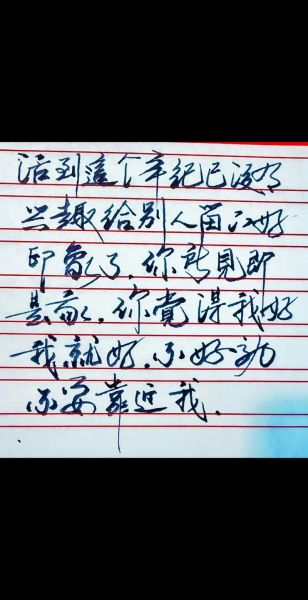 活到這个年紀已没有
兴趣给别人留下好
印象了,你所見即
是,你觉得我好
我就好.不好就
不要靠近我.